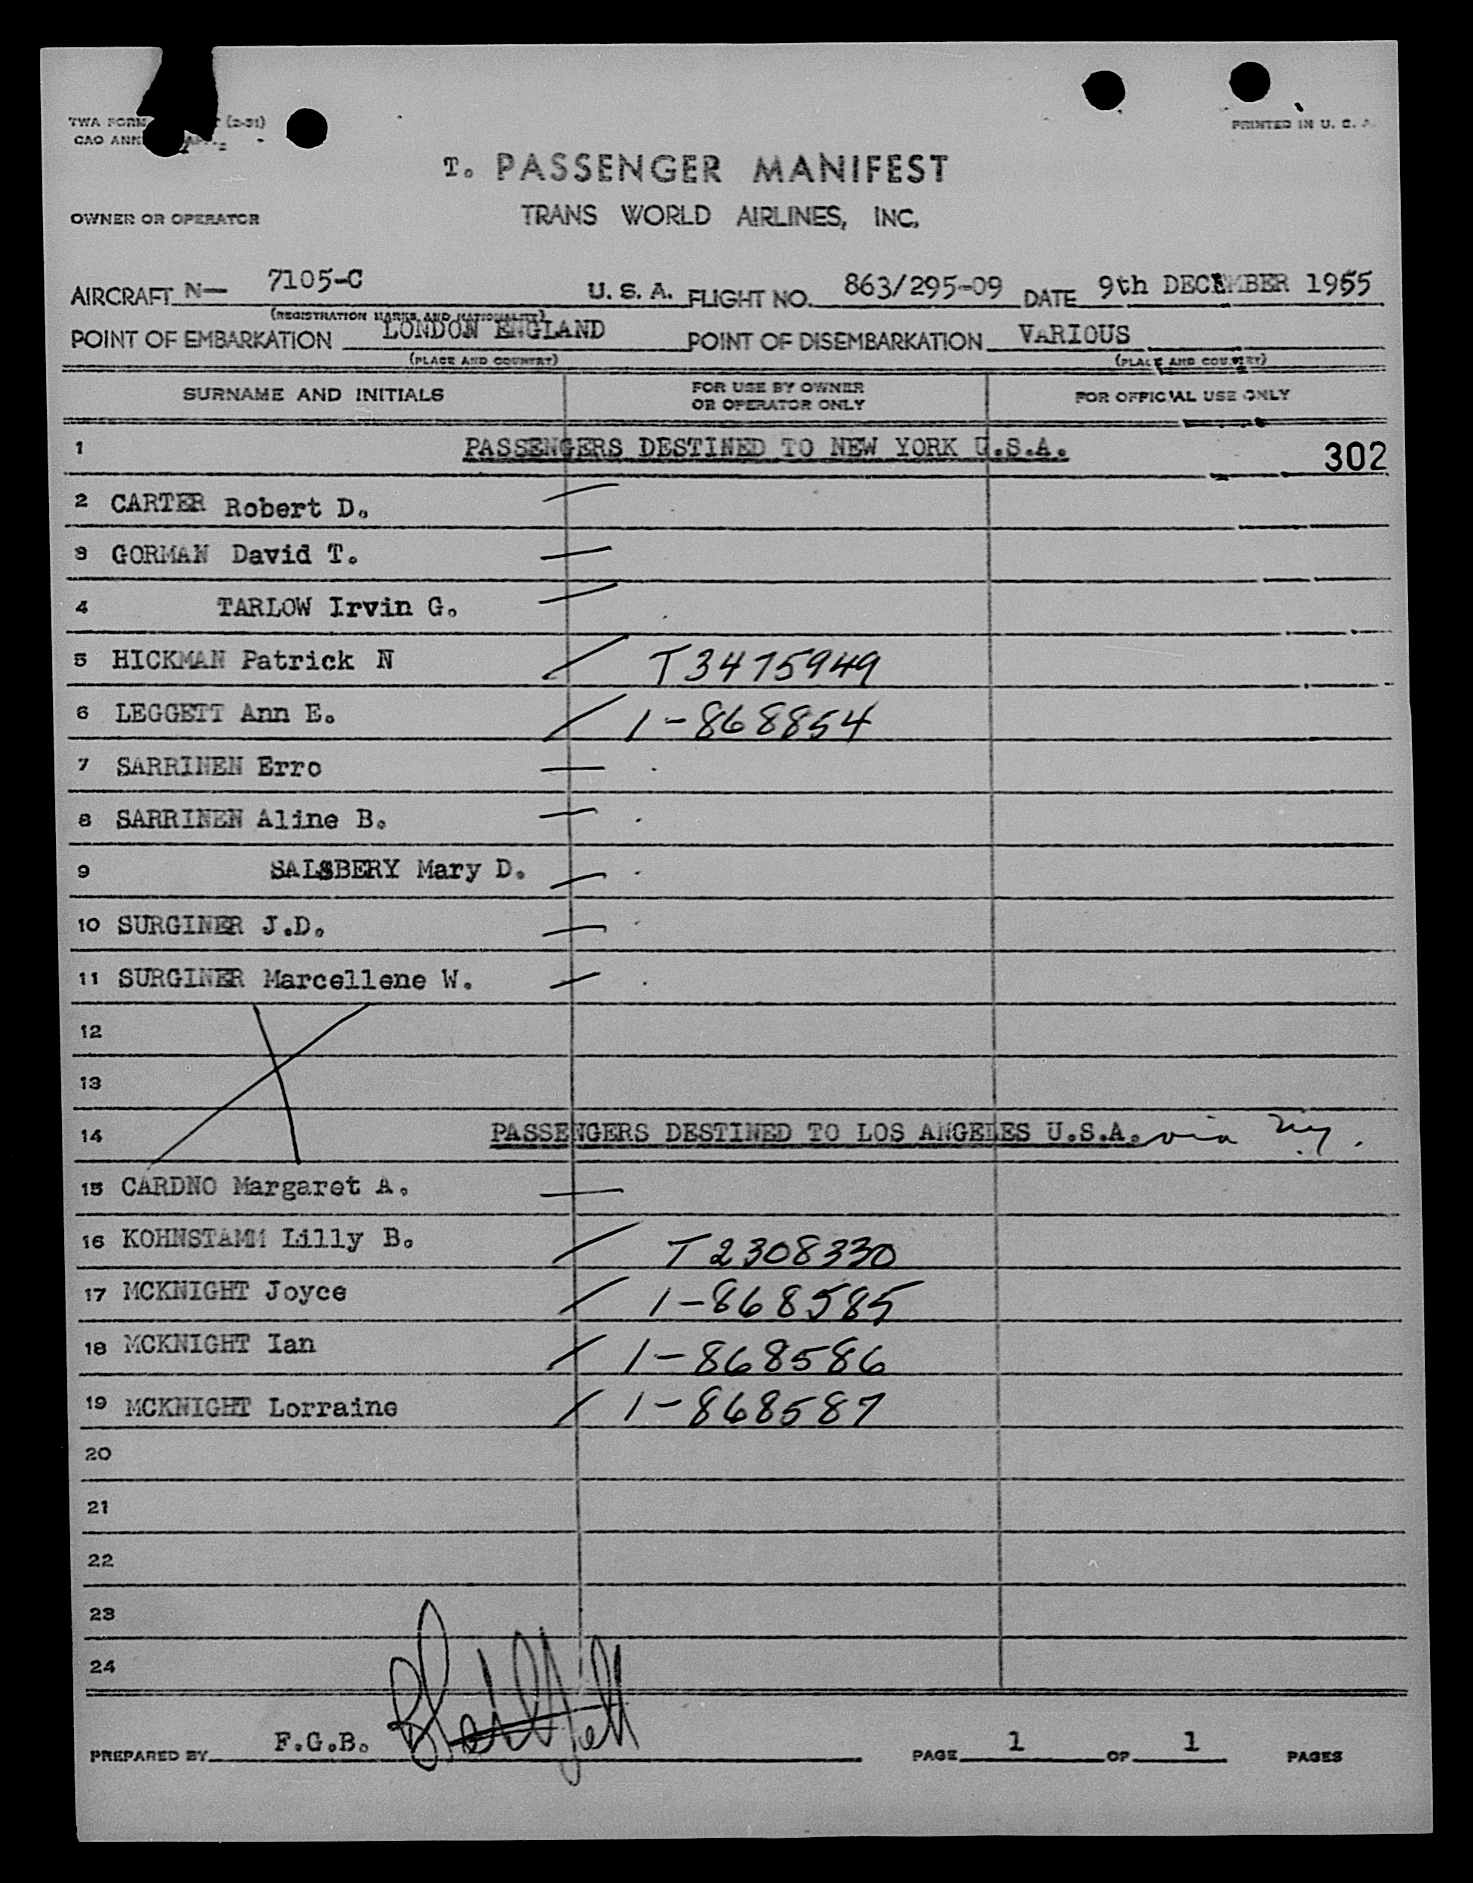 TWA FORM (2-51)
PRINTED IN U. S. A.
CAO ANN
T. PASSENGER MANIFEST
OWNER OR OPERATOR TRANS WORLD AIRLINES, INC.
AIRCRAFT N— 7105-C U. S. A. FLIGHT NO. 863/295-09 DATE 9th DECEMBER 1955
(REGISTRATION MARKS AND NATIONALITY)
POINT OF EMBARKATION LONDON ENGLAND POINT OF DISEMBARKATION VARIOUS
(PLACE AND COUNTRY) (PLACE AND COUNTRY)
SURNAME AND INITIALS FOR USE BY OWNER OR OPERATOR ONLY FOR OFFICIAL USE ONLY
1 PASSENGERS DESTINED TO NEW YORK U.S.A. 302
2 CARTER Robert D.
3 GORMAN David T.
4 TARLOW Irvin G.
5 HICKMAN Patrick N T3475949
6 LEGGETT Ann E. 1-868854
7 SARRINEN Erro
8 SARRINEN Aline B.
9 SALSBERY Mary D.
10 SURGINER J.D.
11 SURGINER Marcellene W.
12
13
14 PASSENGERS DESTINED TO LOS ANGELES U.S.A. via Ny.
15 CARDNO Margaret A.
16 KOHNSTAMM Lilly B. T2308330
17 MCKNIGHT Joyce 1-868585
18 MCKNIGHT Ian 1-868586
19 MCKNIGHT Lorraine 1-868587
20
21
22
23
24
PREPARED BY F.G.B. PAGE 1 OF 1 PAGES